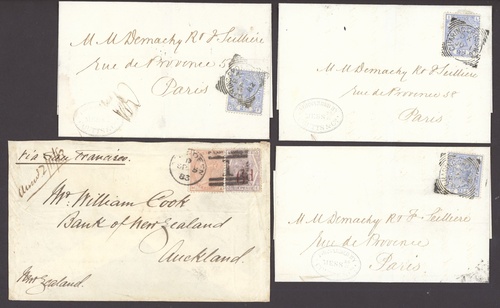 M M Demachy Rt F Seillière
rue de Provence 58
Paris
M M Demachy Rt F Seillière
rue de Provence 58
Paris
via San Francisco.
Mr. William Cook
Bank of New Zealand
Auckland.
New Zealand.
M M Demachy Rt F Seillière
rue de Provence
Paris